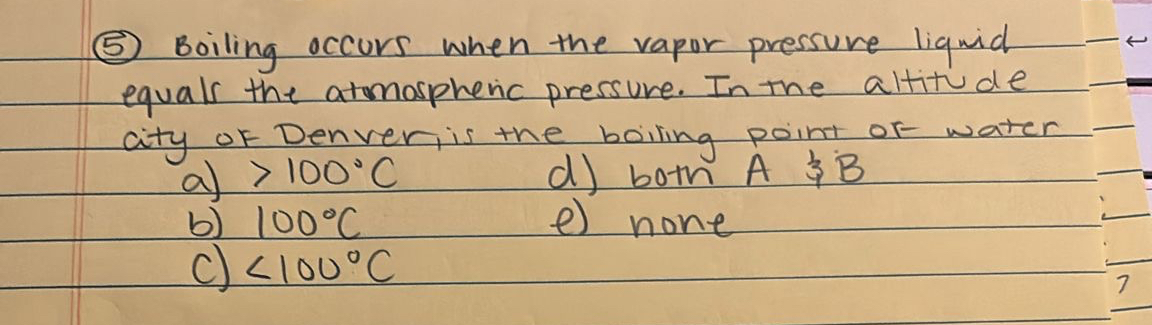 ⑤ Boiling occurs when the vapor pressure liquid
equals the atomospheric pressure. In the altitude
city of Denver, is the boiling point of water
a) >100°C d) both A & B
b) 100°C e) none
c) <100°C